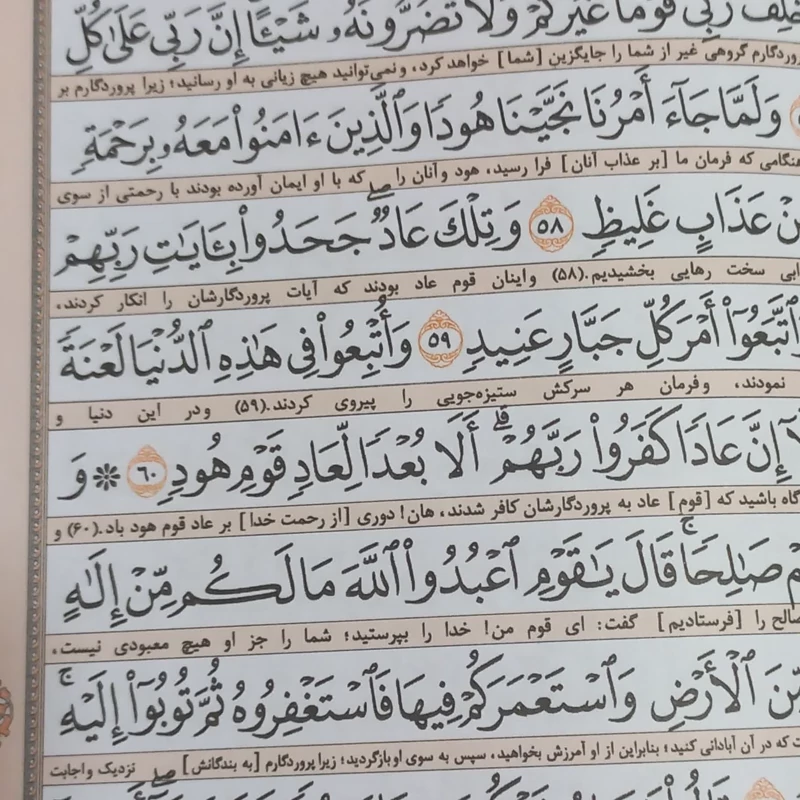 رَبِّی قَوۡمًا غَیۡرَکُمۡ وَلَا تَضُرُّونَهُۥ شَیۡـًٔا إِنَّ رَبِّی عَلَىٰ کُلِّ
گروهی غیر از شما را جایگزین [شما] خواهد کرد، و نمی‌توانید هیچ زیانی به او رسانید؛ زیرا پروردگارم بر
وَلَمَّا جَآءَ أَمۡرُنَا نَجَّیۡنَا هُودًا وَٱلَّذِینَ ءَامَنُواْ مَعَهُۥ بِرَحۡمَةٍ
که فرمان ما [بر عذاب آنان] فرا رسید، هود و آنان را که با او ایمان آورده بودند با رحمتی از سوی
عَذَابٍ غَلِیظٍ ۵۸ وَتِلۡکَ عَادٌۖ جَحَدُواْ بِـَٔایَٰتِ رَبِّهِمۡ
سخت رهایی بخشیدیم. (۵۸) و اینان قوم عاد بودند که آیات پروردگارشان را انکار کردند،
ٱتَّبَعُوٓاْ أَمۡرَ کُلِّ جَبَّارٍ عَنِیدٍ ۵۹ وَأُتۡبِعُواْ فِی هَٰذِهِ ٱلدُّنۡیَا لَعۡنَةً
نمودند، و فرمان هر سرکش ستیزه‌جویی را پیروی کردند. (۵۹) و در این دنیا و
إِنَّ عَادًا کَفَرُواْ رَبَّهُمۡۗ أَلَا بُعۡدًا لِّعَادٍ قَوۡمِ هُودٍ ۶۰ * وَ
باشید که [قوم] عاد به پروردگارشان کافر شدند، هان! دوری [از رحمت خدا] بر عاد قوم هود باد. (۶۰) و
صَٰلِحًاۚ قَالَ یَٰقَوۡمِ ٱعۡبُدُواْ ٱللَّهَ مَا لَکُم مِّنۡ إِلَٰهٍ
صالح را [فرستادیم] گفت: ای قوم من! خدا را بپرستید؛ شما را جز او هیچ معبودی نیست،
مِّنَ ٱلۡأَرۡضِ وَٱسۡتَعۡمَرَکُمۡ فِیهَا فَٱسۡتَغۡفِرُوهُ ثُمَّ تُوبُوٓاْ إِلَیۡهِۚ
که در آن آبادانی کنید؛ بنابراین از او آمرزش بخواهید، سپس به سوی او بازگردید؛ زیرا پروردگارم [به بندگانش] نزدیک و اجابت